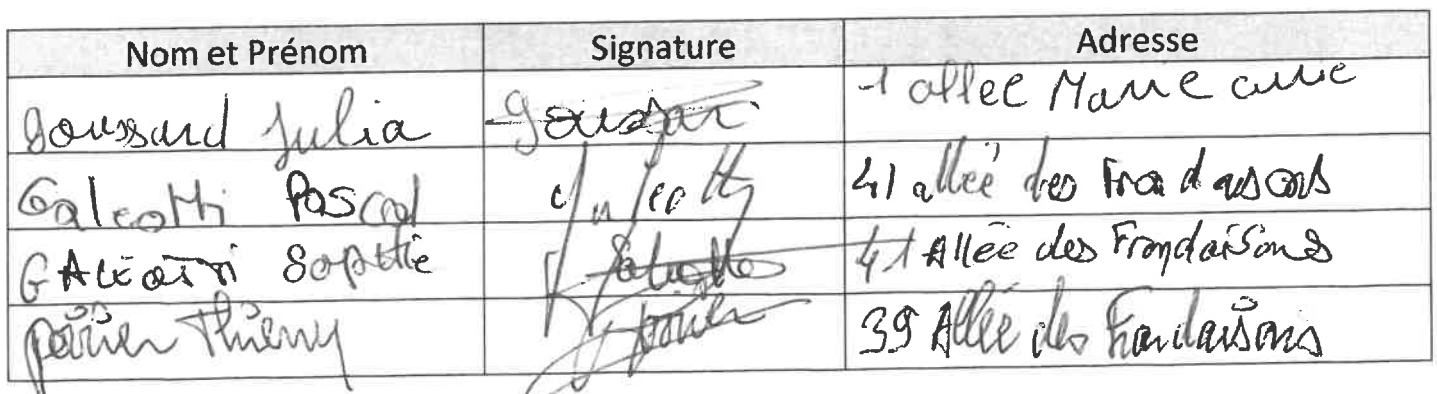 Nom et Prénom Signature Adresse
Goussard Julia Goussar 1 allee Marie curie
Galeotti Pascal Galeotti 41 allée des Frondasons
GALEOTTI Sophie 41 Allée des Frondaisons
Périer Thierry 39 Allée des Frondaisons